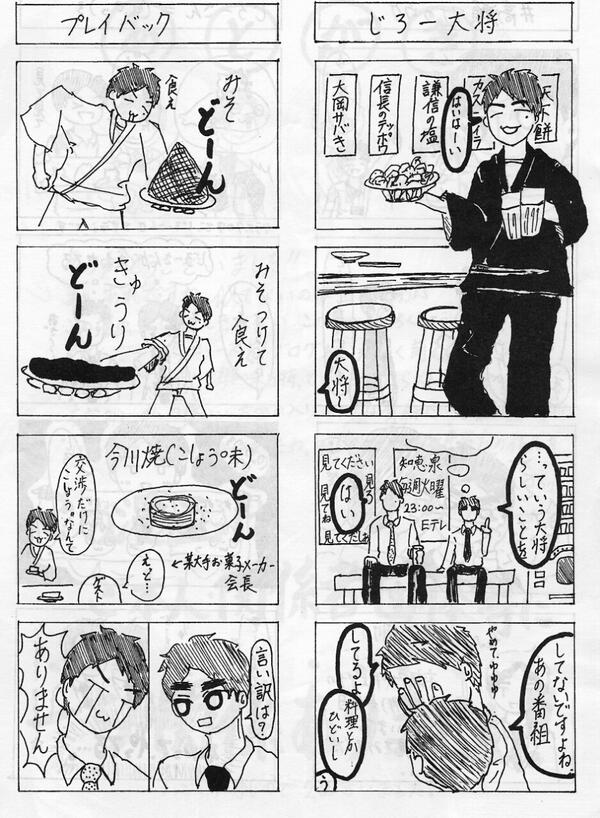 じろー大将
天下餅
カステイラ
謙信の塩
信長のテッポウ
大岡サバき
はいはーい
大将
…っていう大将
らしいことを
知恵泉
毎週火曜
23:00〜
Eテレ
見てください
見ろ
見てね
見てくだしあ
はい
してないですよね、
あの番組
やめて、ゆゆゆ
してるよ
料理とか
ひどいし
う
プレイバック
みそ
どーん
食え
みそつけて
食え
きゅうり
どーん
今川焼(こしょう味)
どーん
交渉だけに
こしょう。なんて
えと…
ゲスト
←某大手お菓子メーカー
会長
言い訳は?
ありません